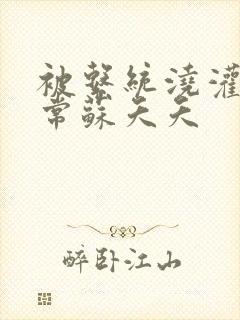 被系統澆灌
常蘇天天
醉卧江山